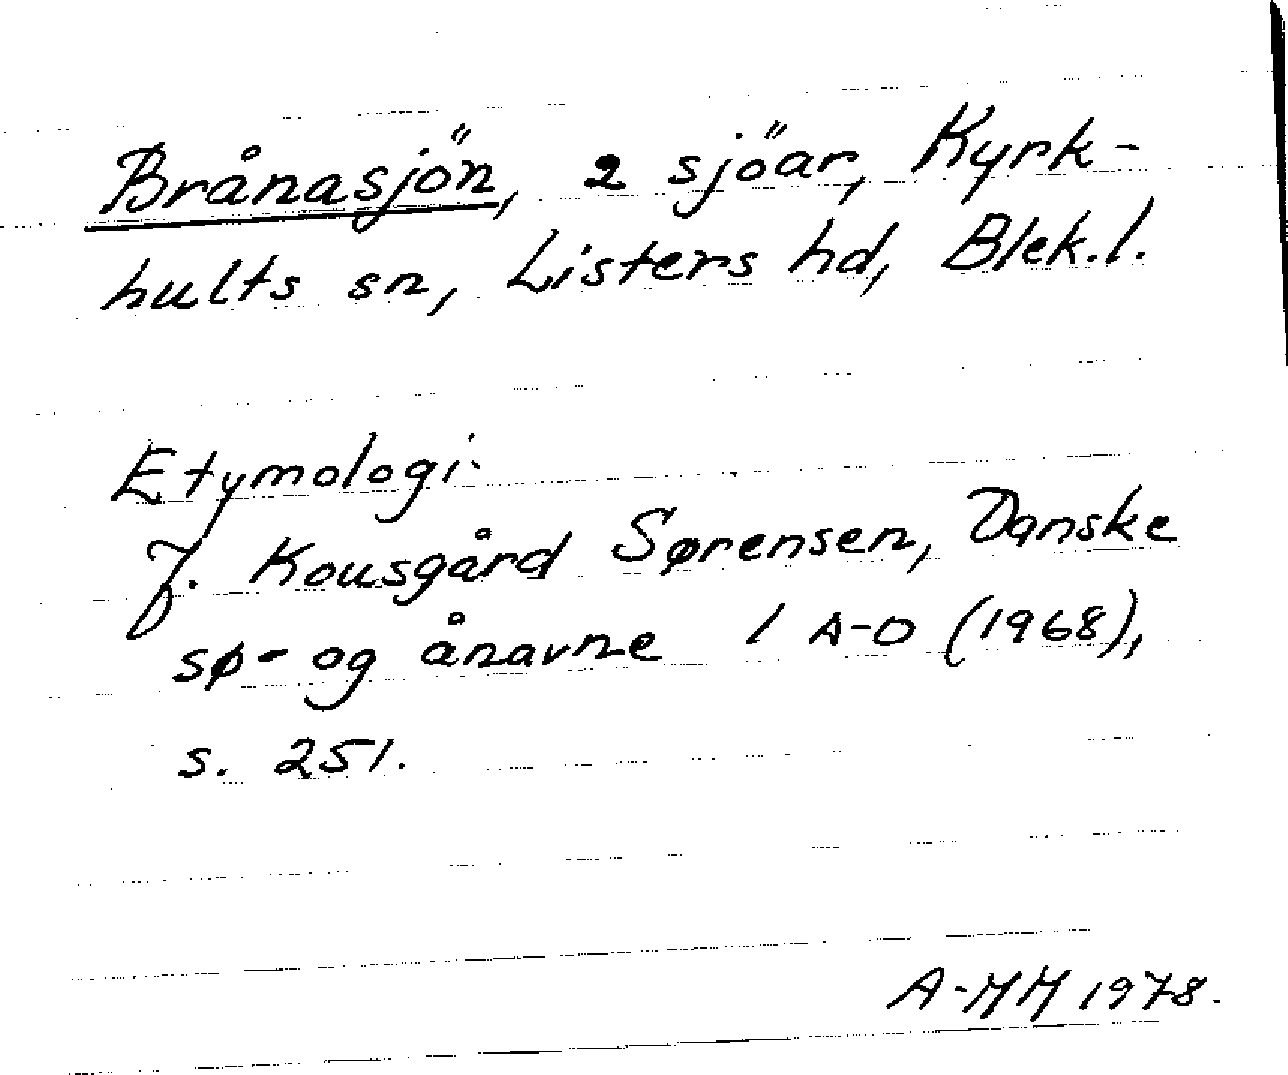 Brånasjön, 2 sjöar, Kyrk-
hults sn, Listers hd, Blek.l.
Etymologi:
J. Kousgård Sørensen, Danske
sø- og ånavne 1 A-D (1968),
s. 251.
A-MM 1978.